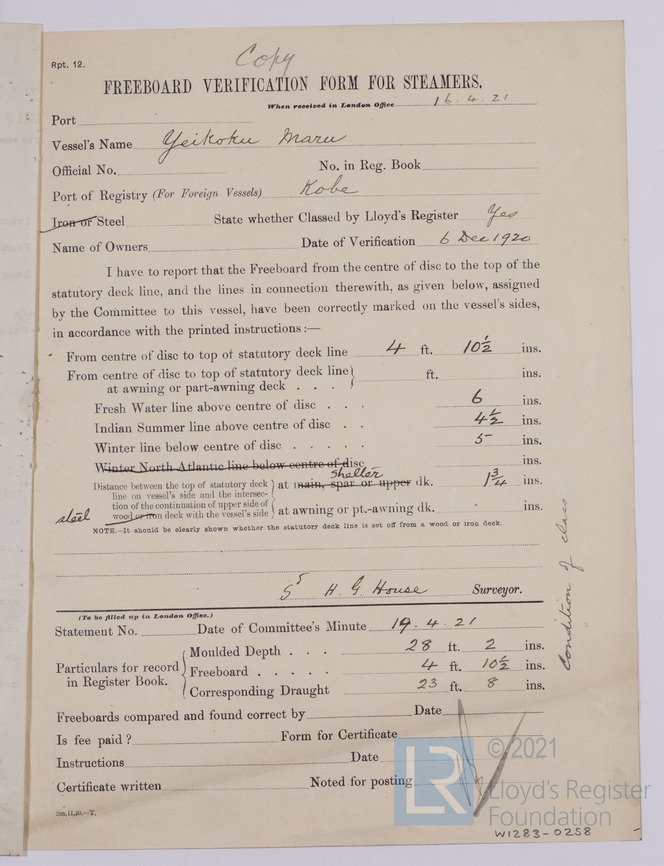 Copy
Rpt. 12.
FREEBOARD VERIFICATION FORM FOR STEAMERS.
When received in London Office 16.4.21
Port
Vessel's Name Yeikoku Maru
Official No. No. in Reg. Book
Port of Registry (For Foreign Vessels) Kobe
Iron or Steel State whether Classed by Lloyd's Register Yes
Name of Owners Date of Verification 6 Dec 1920
I have to report that the Freeboard from the centre of disc to the top of the
statutory deck line, and the lines in connection therewith, as given below, assigned
by the Committee to this vessel, have been correctly marked on the vessel's sides,
in accordance with the printed instructions:—
From centre of disc to top of statutory deck line 4 ft. 10½ ins.
From centre of disc to top of statutory deck line
at awning or part-awning deck . . . ft. ins.
Fresh Water line above centre of disc . . . 6 ins.
Indian Summer line above centre of disc . . 4½ ins.
Winter line below centre of disc . . . . . 5 ins.
Winter North Atlantic line below centre of disc ins.
Distance between the top of statutory deck
line on vessel's side and the intersec-
tion of the continuation of upper side of
steel wood or iron deck with the vessel's side
shelter
at main, spar or upper dk. 1¾ ins.
at awning or pt.-awning dk. ins.
NOTE.—It should be clearly shown whether the statutory deck line is set off from a wood or iron deck.
H. G. House Surveyor.
Condition of class
(To be filled up in London Office.)
Statement No. Date of Committee's Minute 19.4.21
Particulars for record
in Register Book.
Moulded Depth . . . 28 ft. 2 ins.
Freeboard . . . . . 4 ft. 10½ ins.
Corresponding Draught 23 ft. 8 ins.
Freeboards compared and found correct by Date
Is fee paid? Form for Certificate
Instructions Date
Certificate written Noted for posting
2m,11,20.—T.
LR
© 2021
Lloyd's Register
Foundation
W1283-0258